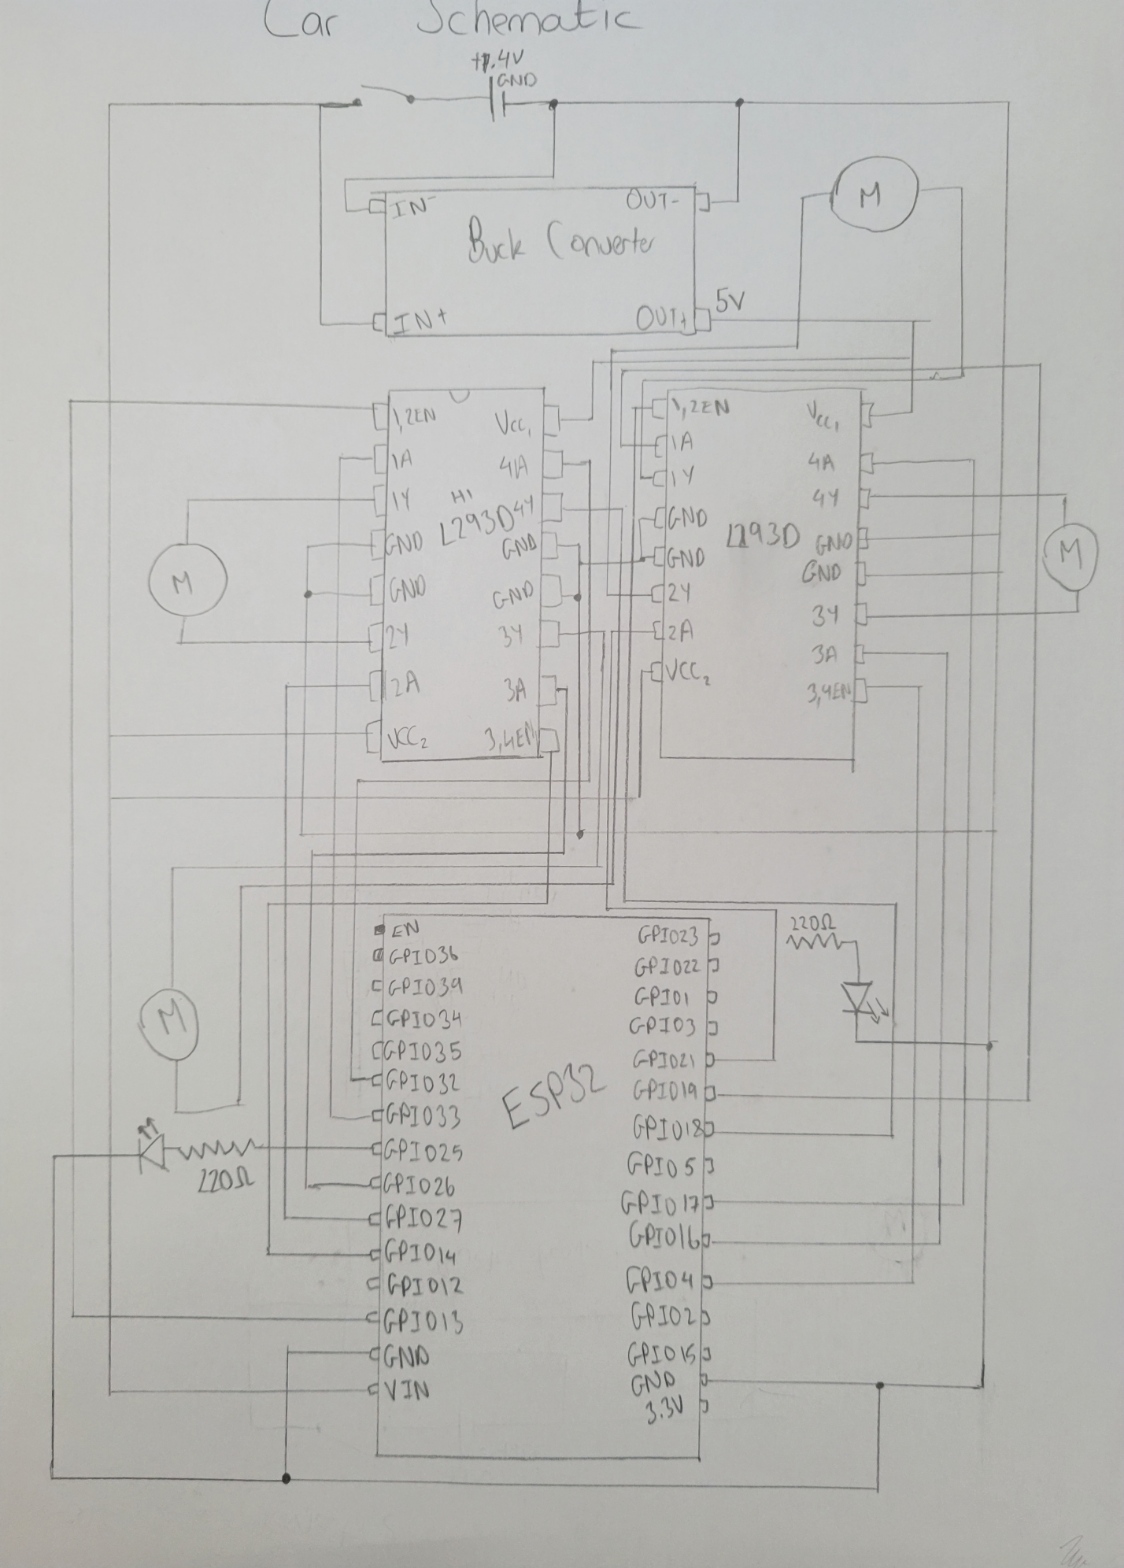 Car Schematic
+7.4V
GND
IN-
OUT-
Buck Converter
IN+
OUT+
5V
M
1,2EN
1A
1Y
GND
GND
2Y
2A
VCC2
H1
L293D
Vcc1
4A
4Y
GND
GND
3Y
3A
3,4EN
M
1,2EN
1A
1Y
GND
GND
2Y
2A
VCC2
L293D
Vcc1
4A
4Y
GND
GND
3Y
3A
3,4EN
M
M
220Ω
EN
GPIO36
GPIO39
GPIO34
GPIO35
GPIO32
GPIO33
GPIO25
GPIO26
GPIO27
GPIO14
GPIO12
GPIO13
GND
VIN
ESP32
GPIO23
GPIO22
GPIO1
GPIO3
GPIO21
GPIO19
GPIO18
GPIO5
GPIO17
GPIO16
GPIO4
GPIO2
GPIO15
GND
3.3V
220Ω